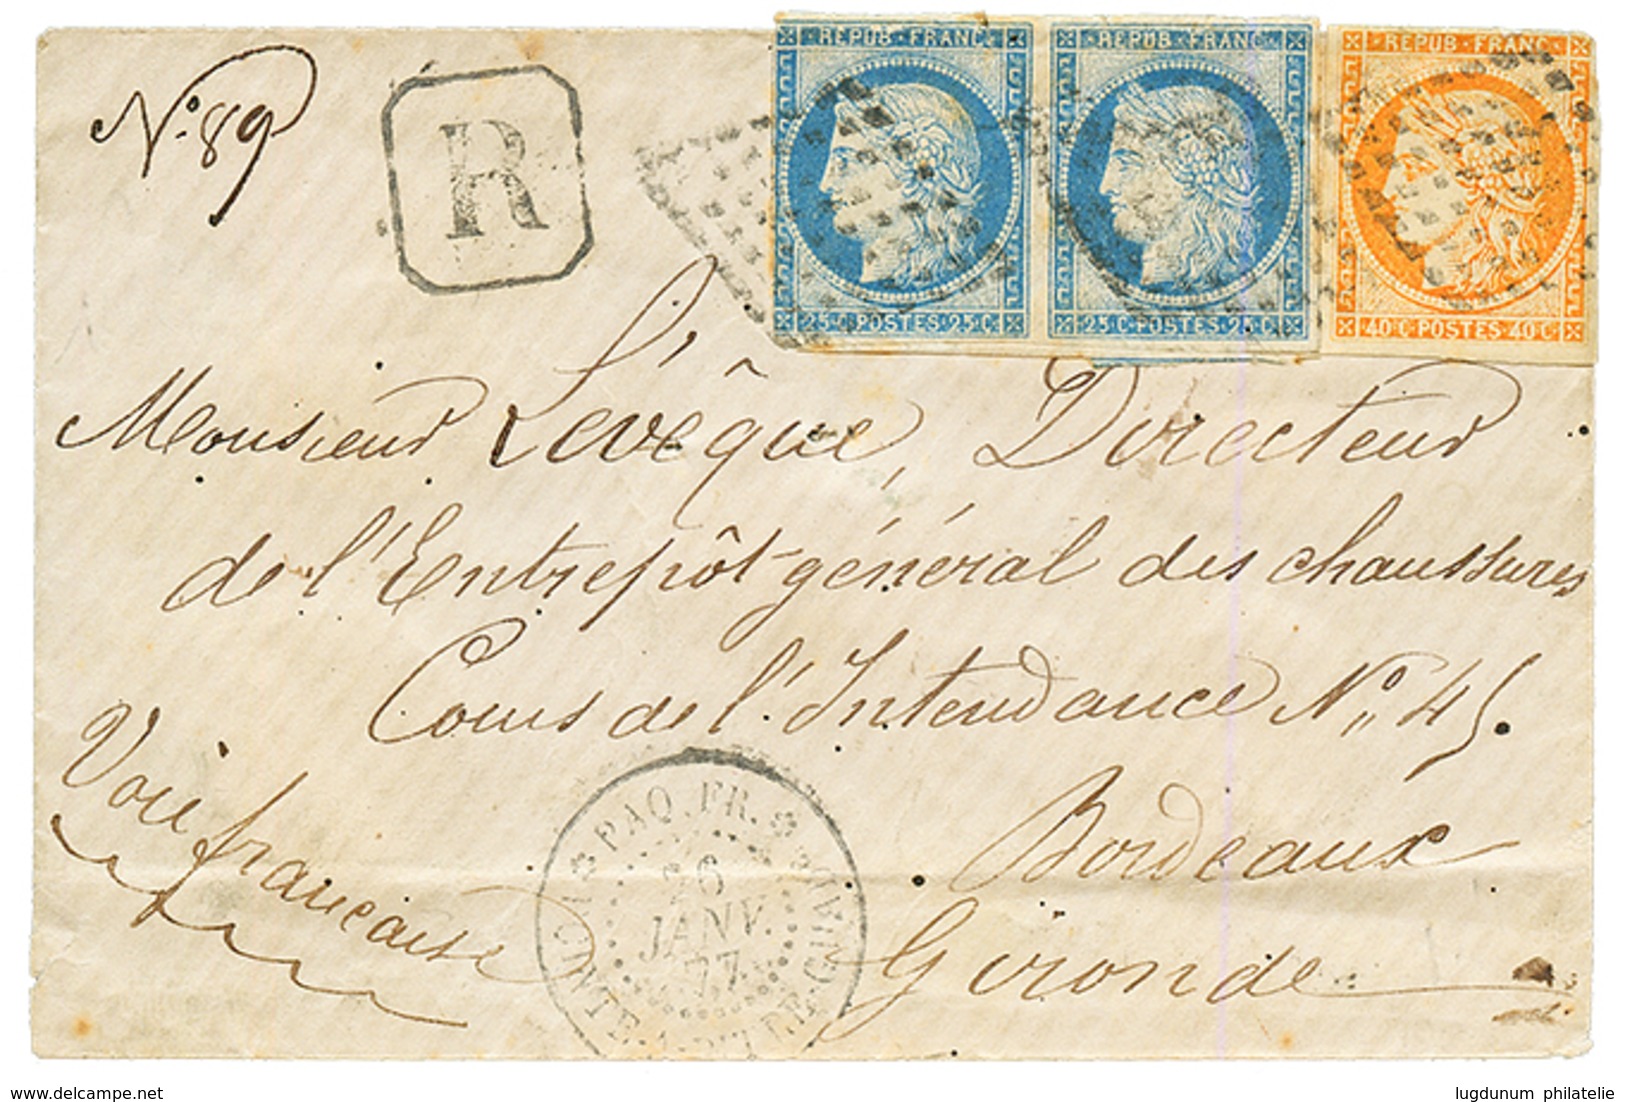 REPUB·FRANC
REPUB·FRANC
REPUB·FRANC
25·C·POSTES·25·C
25·C·POSTES·25·C
40·C·POSTES·40·C
N.° 89
R
Monsieur Levêque, Directeur
de l'Entrepôt général des chaussures
Cours de l'Intendance N.° 45.
Bordeaux
Gironde
Voie française
PAQ. FR.
26
JANV.
77
GUAD
POINTE-A-PITRE
delcampe.net
lugdunum philatelie